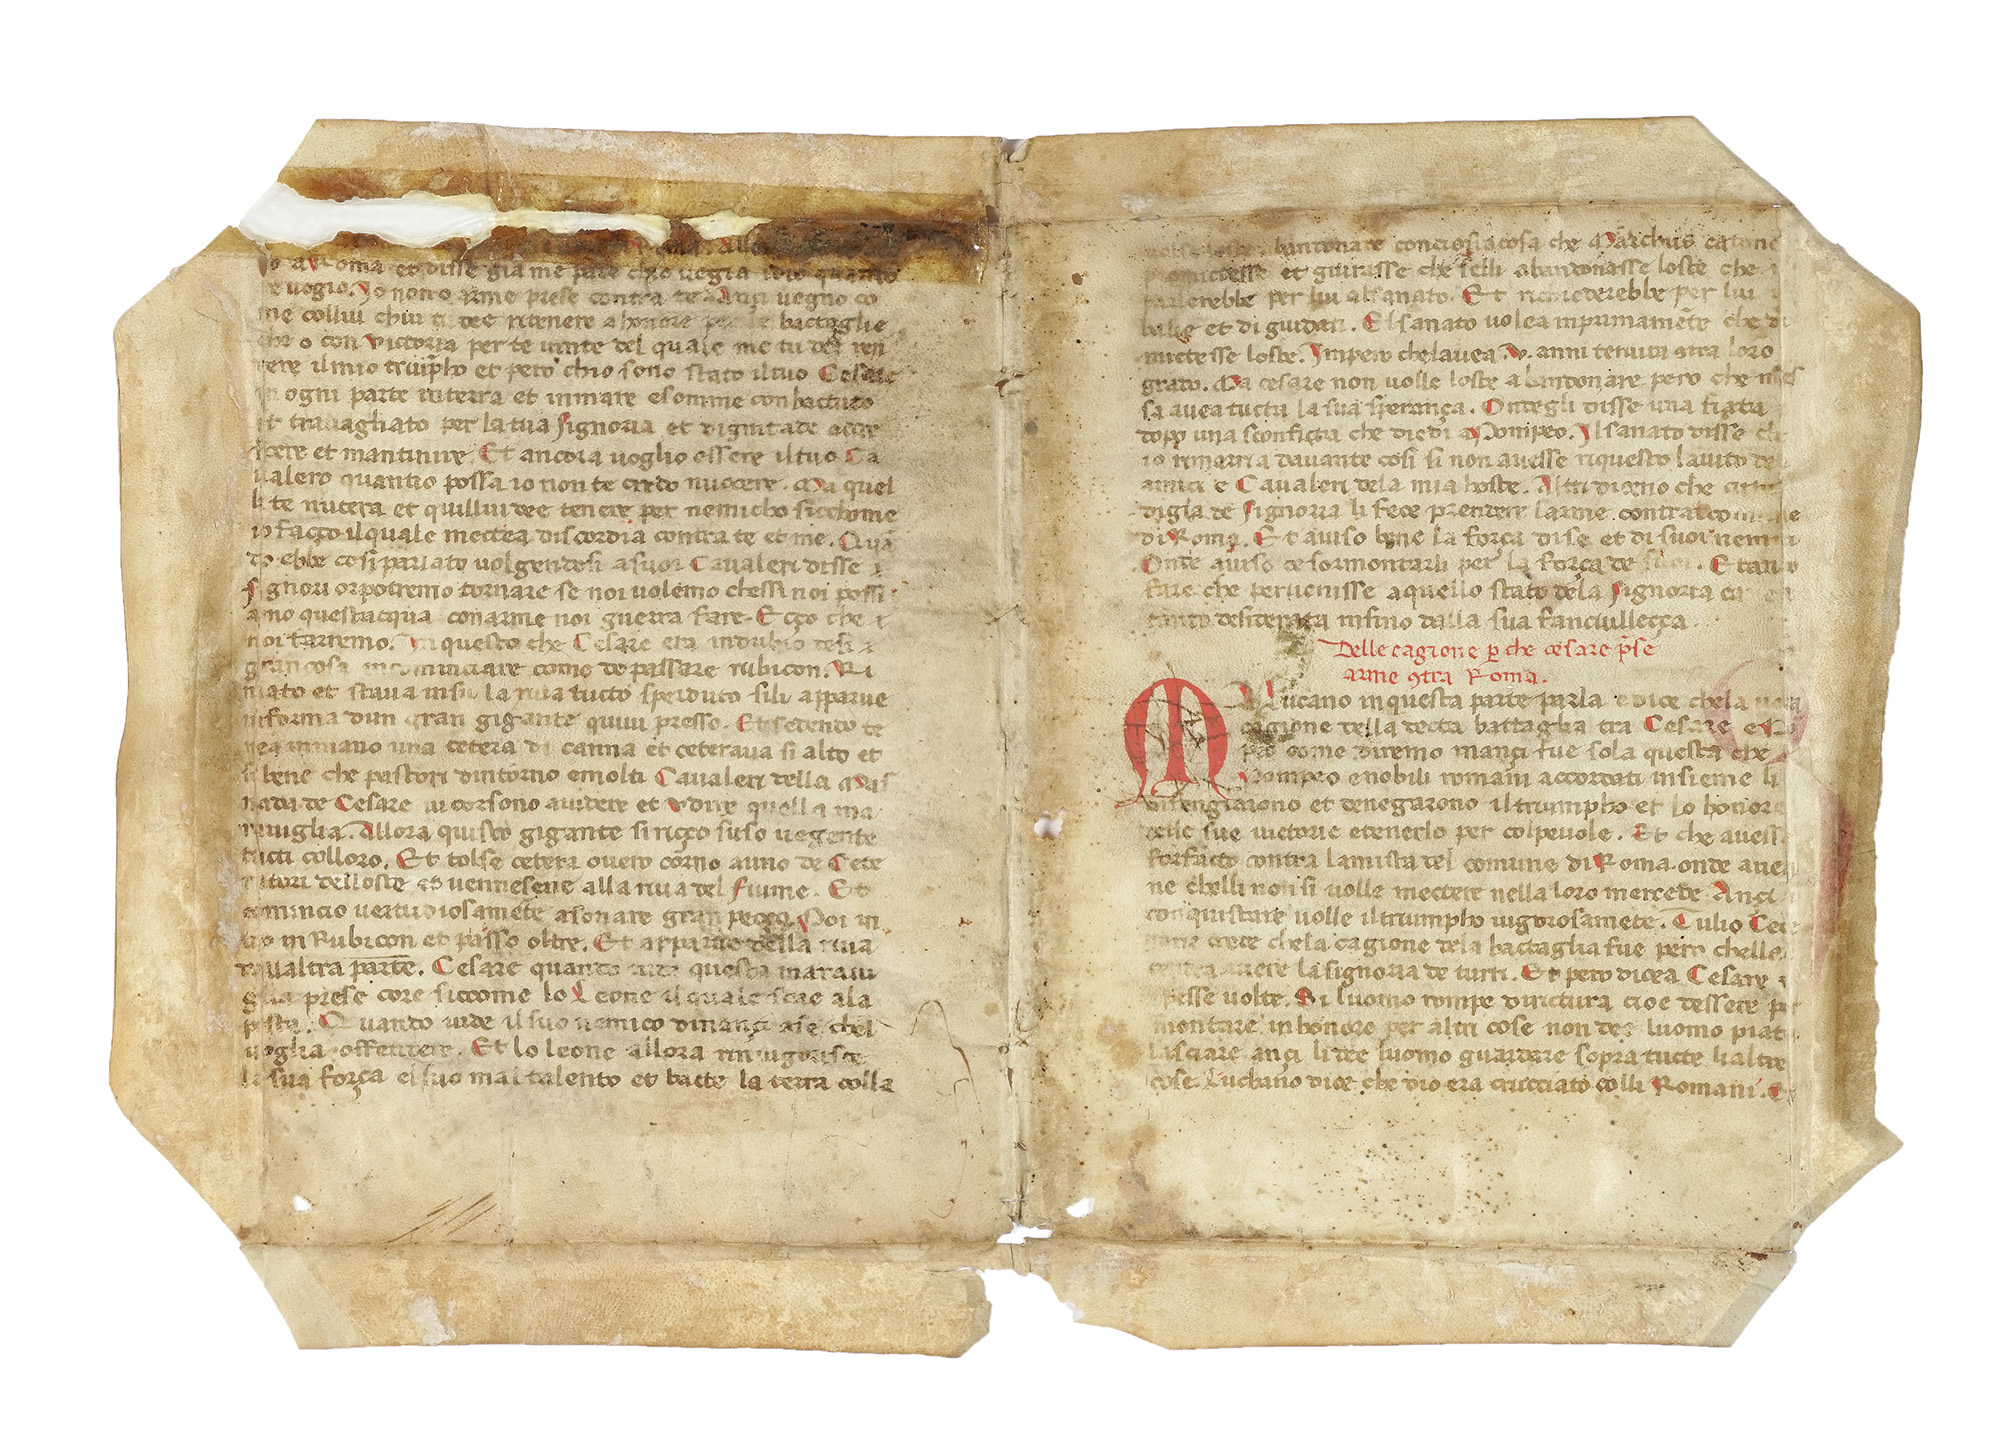 Roma. Allo
a Roma et disse gia me pare chio uegia idio quanto
e uogio. Io non o arme prese contra te Anci uegno co
me collui chiu tu dee ritenere a honore per le battaglie
che o con victoria per te uinte del quale me tu dei ren
dere il mio triu̅pho et pero chio sono stato il tuo Cesare
in ogni parte in terra et in mare e somme conbactuto
et trauagliato per la tua signoria et dignitade accre
scere et mantinire. Et ancora uoglio essere il tuo Ca
ualero quantio possa io non te credo nuocere. Ma quel
li te nucera et quillui dee tenere per nemicho sicchome
io facto il quale mectea discordia contra te et me. Qua̅
do ebbe cosi parlato uolgendosi a suoi Caualeri disse
signori or potremo tornare se noi uolemo chessi noi possi
amo questacqua con arme noi guerra fare. Ecco che
noi farremo. In questo che Cesare era in dubio desi a
gran cosa incominciare come de passare rubicon. Ri
mato et staua insu la riua tucto sperduto sili apparue
in forma dun gran gigante quiui presso. Et sedendo te
nea in mano una cetera di canna et ceteraua si alto et
si bene che pastori dintorno e molti Caualeri della Mas
nada de Cesare ui corsono a uidere et Vdire quella ma
rauiglia. Allora quisto gigante si ricco suso uegente
tucti colloro. Et tolse cetera ouero corno a uno de Cete
ratori dell oste et uennesene alla riua del fiume. Et
comincio uertudiosame̅te a sonare gran pecco. Poi in
tro in Rubicon et passo oltre. Et apparue della riua
daualtra parte. Cesare quando uide questa maraui
glia prese core siccome lo Leone il quale scie ala
pista. Quando uide il suo nemico dinanci a se chel
uoglia offendere. Et lo leone allora rinuigorisce
la sua força el suo mal talento et bacte la terra colla
abandonare concio sia cosa che Marchus catone
promictesse et giurasse che selli abandonasse loste che
parlerebbe per lui al sanato. Et richiederebbe per lui
balie et di guidari. El sanato uolea inprimame̅te che di
mictesse loste. Impero che lauea .v. anni tenuta 9tra loro
grado. Ma cesare non uolle loste abandonare pero che mes
sa auea tucta la sua sperança. Onde gli disse una fiata
dopo una sconficta che diedi a Pompeo. Il sanato disse ch
io rimarria dauante cosi si non auesse riquesto laiuto de
amici e Caualeri dela mia hoste. Altri diceno che
digia de signoria li fece prendere larme contral comune
di Roma. Et auiso bene la força di se et di suoi nemici
Onde auiso de sormontarli per la força de suoi. E tanto
fare che peruenisse a quello stato dela signoria ca
tanto desiderata infino dalla sua fanciullecça.
Delle cagione p̱ che cesare p̅se
arme 9tra Roma.
M Lucano in questa parte parla e dice che la uera
cagione della decta battaglia tra Cesare e Po̅
peo come diremo manci fue sola questa che
Pompeo e nobili romani accordati insieme li
infengiarono et denegarono il triumpho et lo honore
delle sue uictorie e tenerlo per colpeuole. Et che auess
forfacto contra lamista del comune di Roma. onde auen
ne chelli non si uolle mectere nella loro mercede Anci
conquistare uolle il triumpho uigorosamete. Tulio Cece
rone crede che la cagione dela bactaglia fue pero chelle
uolea auere la signoria de turti. Et pero dicea Cesare
spesse uolte. Si luomo rompe dirictura cioe dessere per
montare in honore per altri cose non dee luomo piata
lasciare anci li dee luomo guardare sopra tucte li altre
cose. Luchano dice che dio era crucciato colli Romani. E